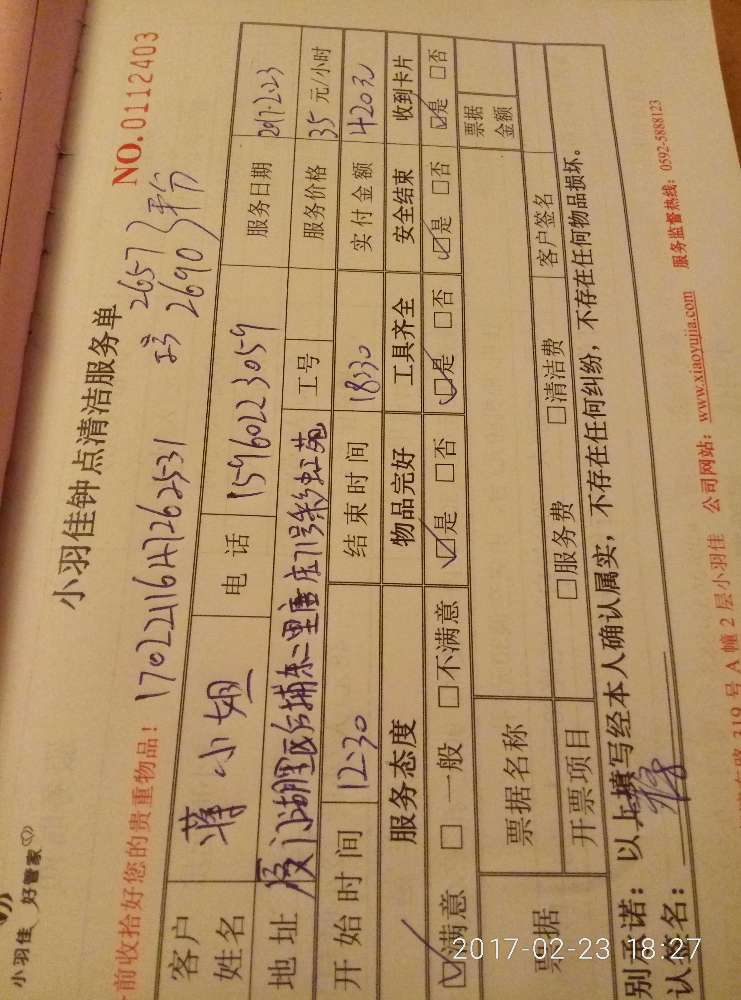 小羽佳 好管家
小羽佳钟点清洁服务单
NO.0112403
前收拾好您的贵重物品！
2657
2690
客户姓名 蒋小姐 电话 15960223059 服务日期 2017.2.23
地址 厦门湖里区 工号 服务价格 35元/小时
开始时间 12:30 结束时间 18:30 实付金额 420元
服务态度 物品完好 工具齐全 安全结束 收到卡片
☑满意 □一般 □不满意 ☑是 □否 ☑是 □否 ☑是 □否 ☑是 □否
票据 票据名称 票据金额
开票项目 □服务费 □清洁费 客户签名
别承诺：以上填写经本人确认属实，不存在任何纠纷，不存在任何物品损坏。
认签名：
公司网站：www.xiaoyujia.com 服务监督热线：0592-5888123
319号A幢2层小羽佳
2017-02-23 18:27